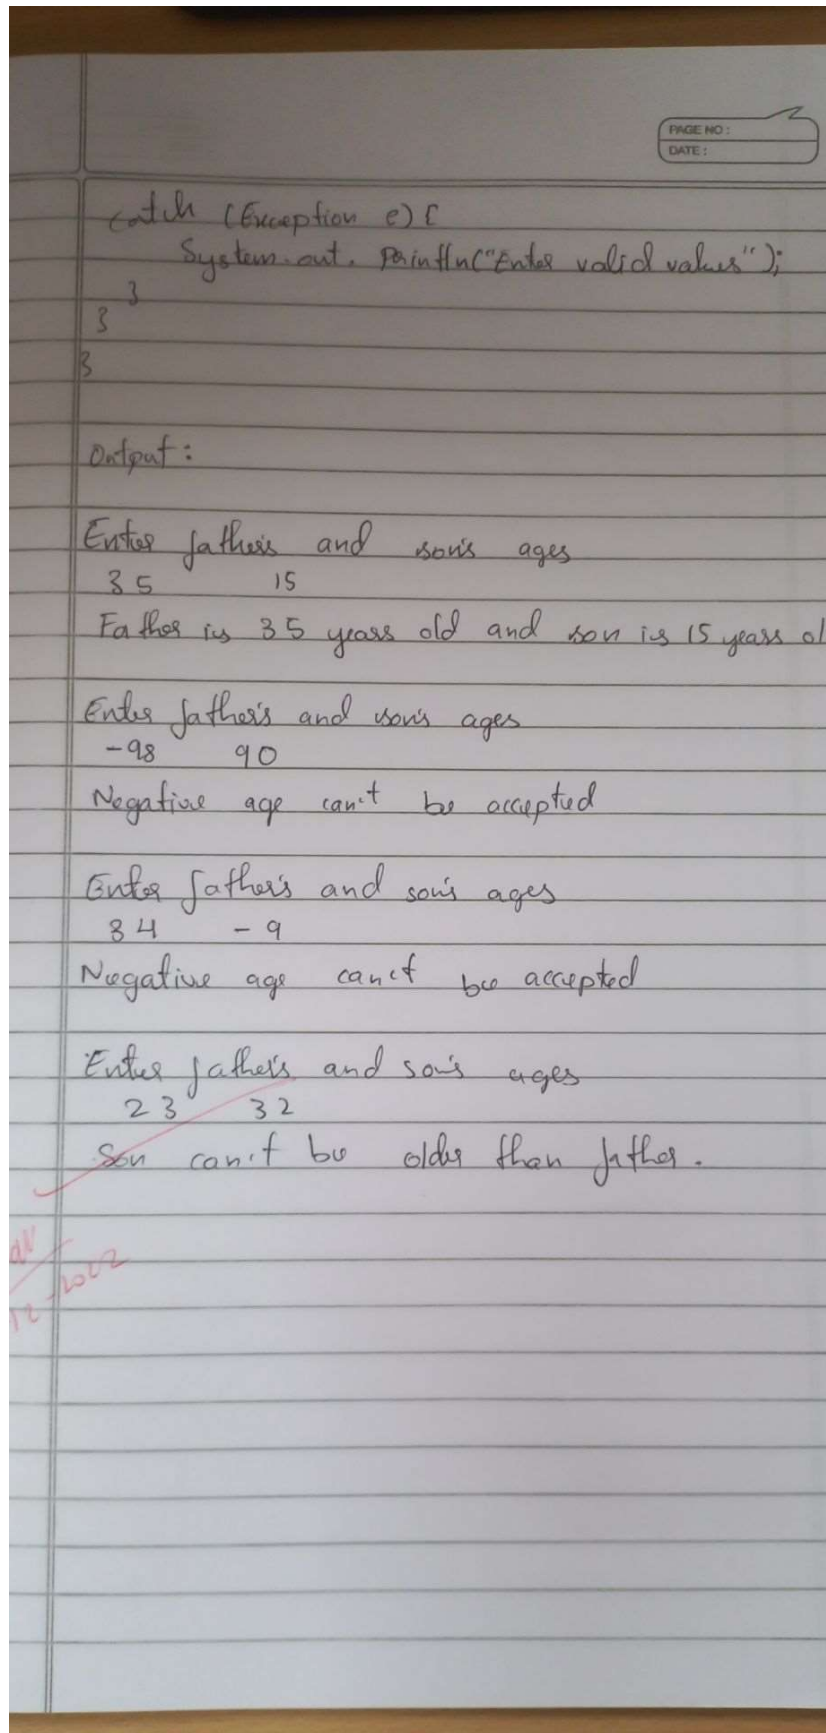 PAGE NO:
DATE:
catch (Exception e) {
System.out.println("Enter valid values");
}
}
}
Output:
Enter father's and son's ages
35 15
Father is 35 years old and son is 15 years ol
Enter father's and son's ages
-98 90
Negative age can't be accepted
Enter father's and son's ages
34 -9
Negative age can't be accepted
Enter father's and son's ages
23 32
Son can't be older than father.
12-2022